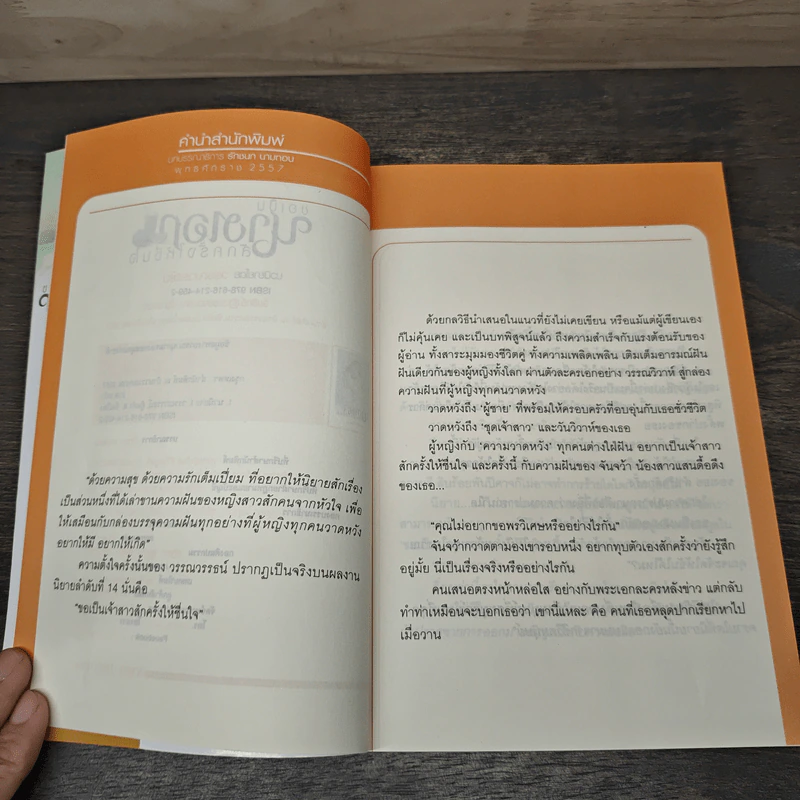 คำนำสำนักพิมพ์
บทบรรณาธิการ รักชนก นามทอน
พุทธศักราช 2557
"ด้วยความสุข ด้วยความรักเต็มเปี่ยม ที่อยากให้นิยายสักเรื่อง
เป็นส่วนหนึ่งที่ได้เล่าขานความฝันของหญิงสาวสักคนจากหัวใจ เพื่อ
ให้เสมือนกับกล่องบรรจุความฝันทุกอย่างที่ผู้หญิงทุกคนวาดหวัง
อยากให้มี อยากให้เกิด"
ความตั้งใจครั้งนั้นของ วรรณวรรธน์ ปรากฏเป็นจริงบนผลงาน
นิยายลำดับที่ 14 นั่นคือ
"ขอเป็นเจ้าสาวสักครั้งให้ชื่นใจ"
ด้วยกลวิธีนำเสนอในแนวที่ยังไม่เคยเขียน หรือแม้แต่ผู้เขียนเอง
ก็ไม่คุ้นเคย และเป็นบทพิสูจน์แล้ว ถึงความสำเร็จกับแรงต้อนรับของ
ผู้อ่าน ทั้งสาระมุมมองชีวิตคู่ ทั้งความเพลิดเพลิน เติมเต็มอารมณ์ฝัน
ฝันเดียวกันของผู้หญิงทั้งโลก ผ่านตัวละครเอกอย่าง วรรณวิวาห์ สู่กล่อง
ความฝันที่ผู้หญิงทุกคนวาดหวัง
วาดหวังถึง 'ผู้ชาย' ที่พร้อมให้ครอบครัวที่อบอุ่นกับเธอชั่วชีวิต
วาดหวังถึง 'ชุดเจ้าสาว' และวันวิวาห์ของเธอ
ผู้หญิงกับ 'ความวาดหวัง' ทุกคนต่างใฝ่ฝัน อยากเป็นเจ้าสาว
สักครั้งให้ชื่นใจ และครั้งนี้ กับความฝันของ จันจว้า น้องสาวแสนดื้อดึง
ของเธอ...
"คุณไม่อยากขอพรวิเศษหรืออย่างไรกัน"
จันจว้ากวาดตามองเขารอบหนึ่ง อยากทุบตัวเองสักครั้งว่ายังรู้สึก
อยู่มั้ย นี่เป็นเรื่องจริงหรืออย่างไรกัน
คนเสนอตรงหน้าหล่อใส อย่างกับพระเอกละครหลังข่าว แต่กลับ
ทำท่าเหมือนจะบอกเธอว่า เขานี่แหละ คือ คนที่เธอหลุดปากเรียกหาไป
เมื่อวาน